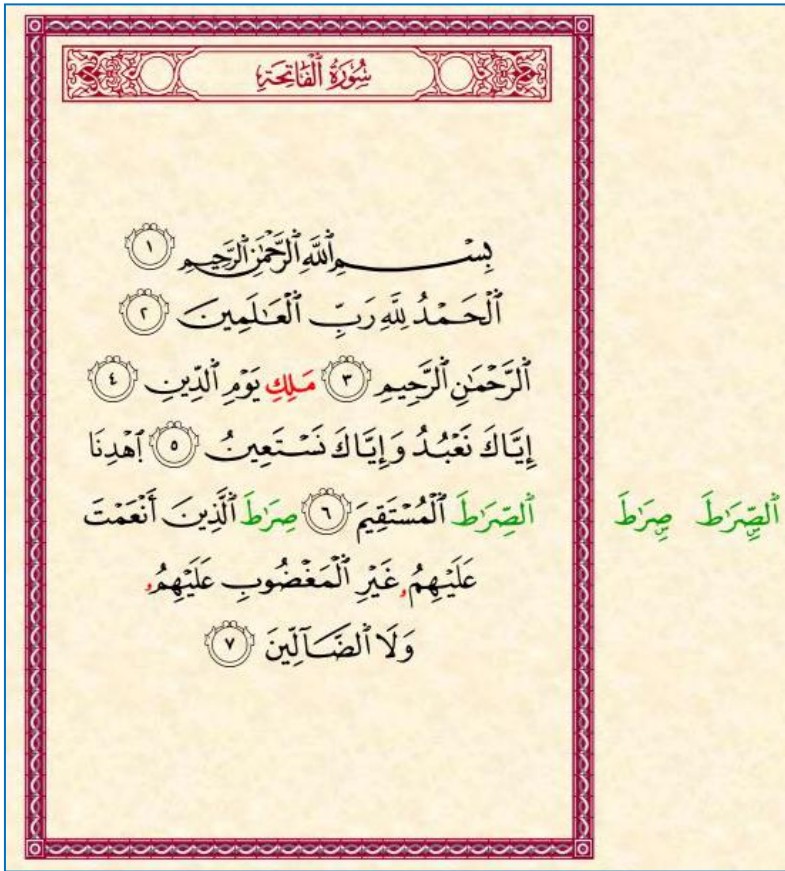 سُورَةُ ٱلْفَاتِحَةِ
بِسْمِ ٱللَّهِ ٱلرَّحْمَٰنِ ٱلرَّحِيمِ ١
ٱلْحَمْدُ لِلَّهِ رَبِّ ٱلْعَٰلَمِينَ ٢
ٱلرَّحْمَٰنِ ٱلرَّحِيمِ ٣ مَلِكِ يَوْمِ ٱلدِّينِ ٤
إِيَّاكَ نَعْبُدُ وَإِيَّاكَ نَسْتَعِينُ ٥ ٱهْدِنَا
ٱلصِّرَٰطَ ٱلْمُسْتَقِيمَ ٦ صِرَٰطَ ٱلَّذِينَ أَنْعَمْتَ
عَلَيْهِمُۥ غَيْرِ ٱلْمَغْضُوبِ عَلَيْهِمُۥ
وَلَا ٱلضَّآلِّينَ ٧
ٱلصِّرَٰطَ صِرَٰطَ